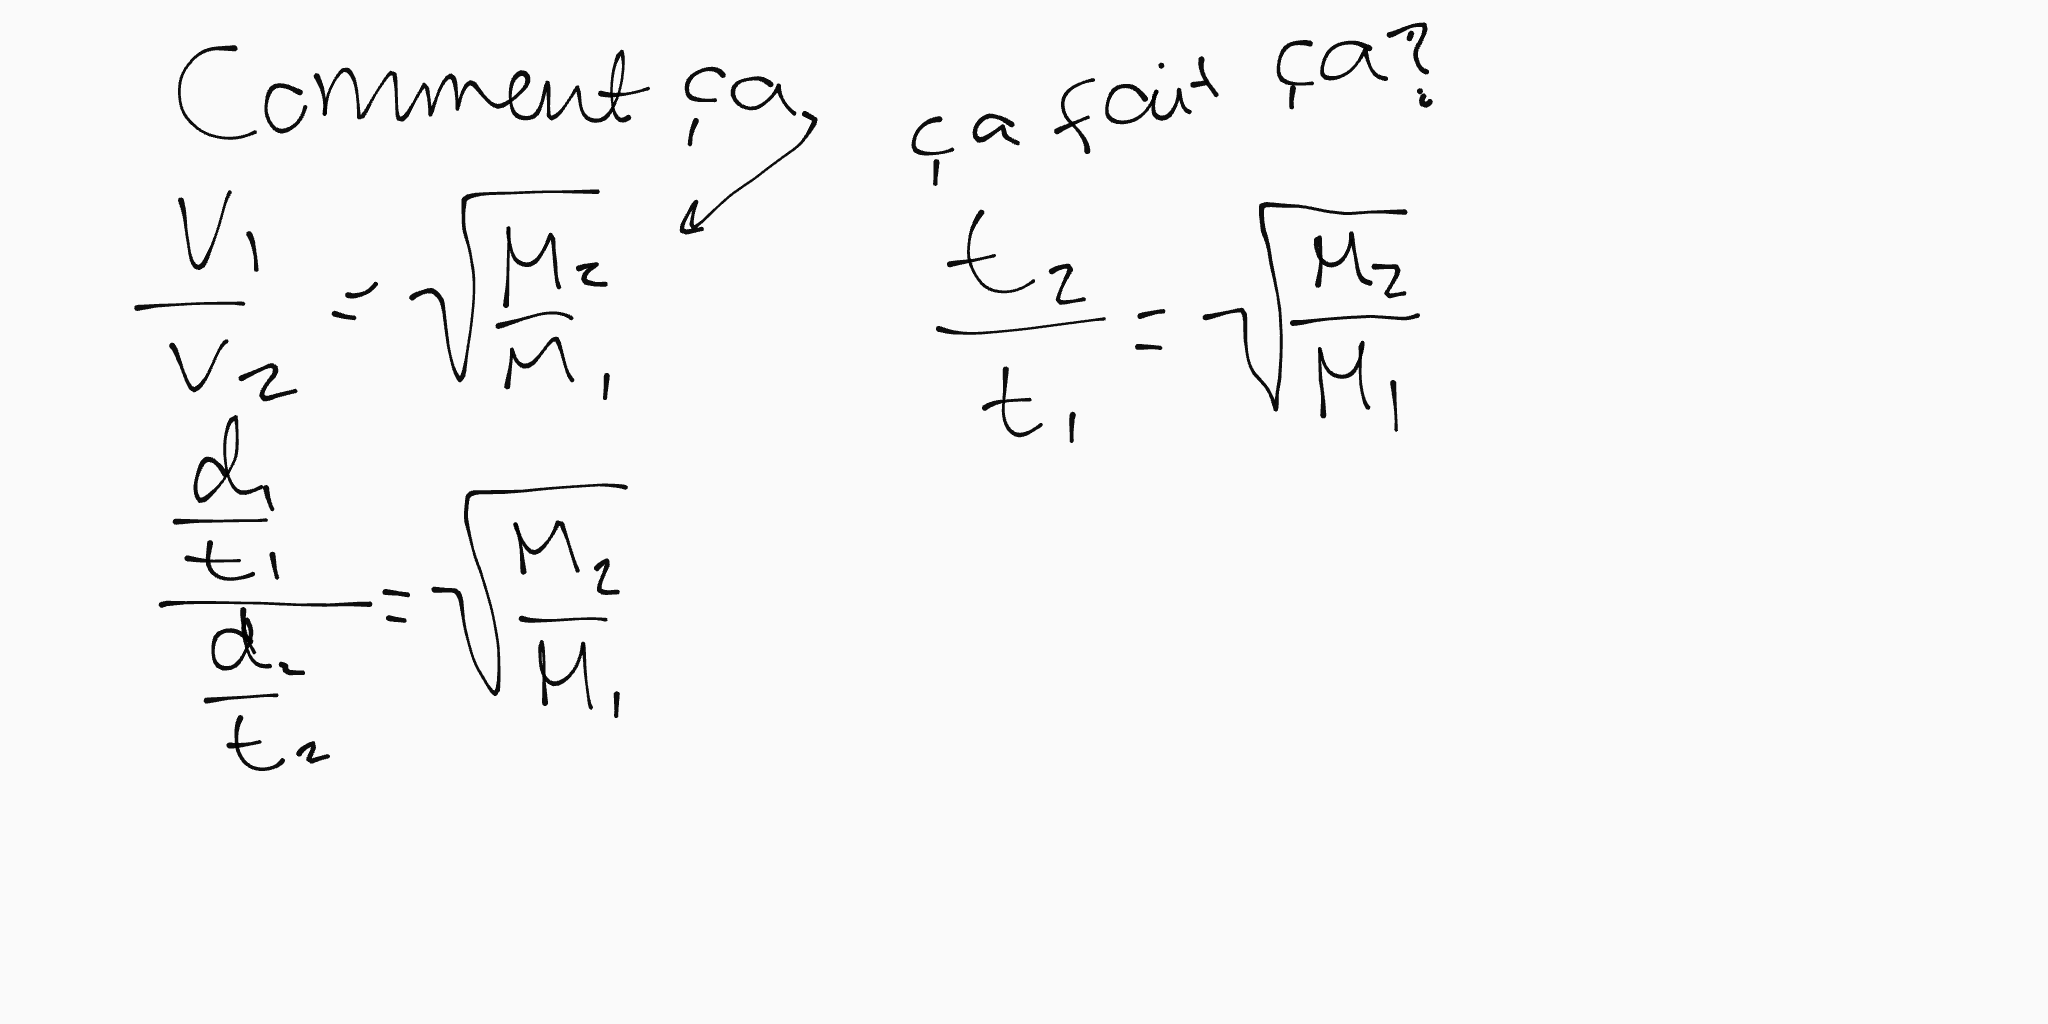 Comment ça, ça fait ça?
V₁/V₂ = √(M₂/M₁)
t₂/t₁ = √(M₂/M₁)
(d₁/t₁)/(d₂/t₂) = √(M₂/M₁)